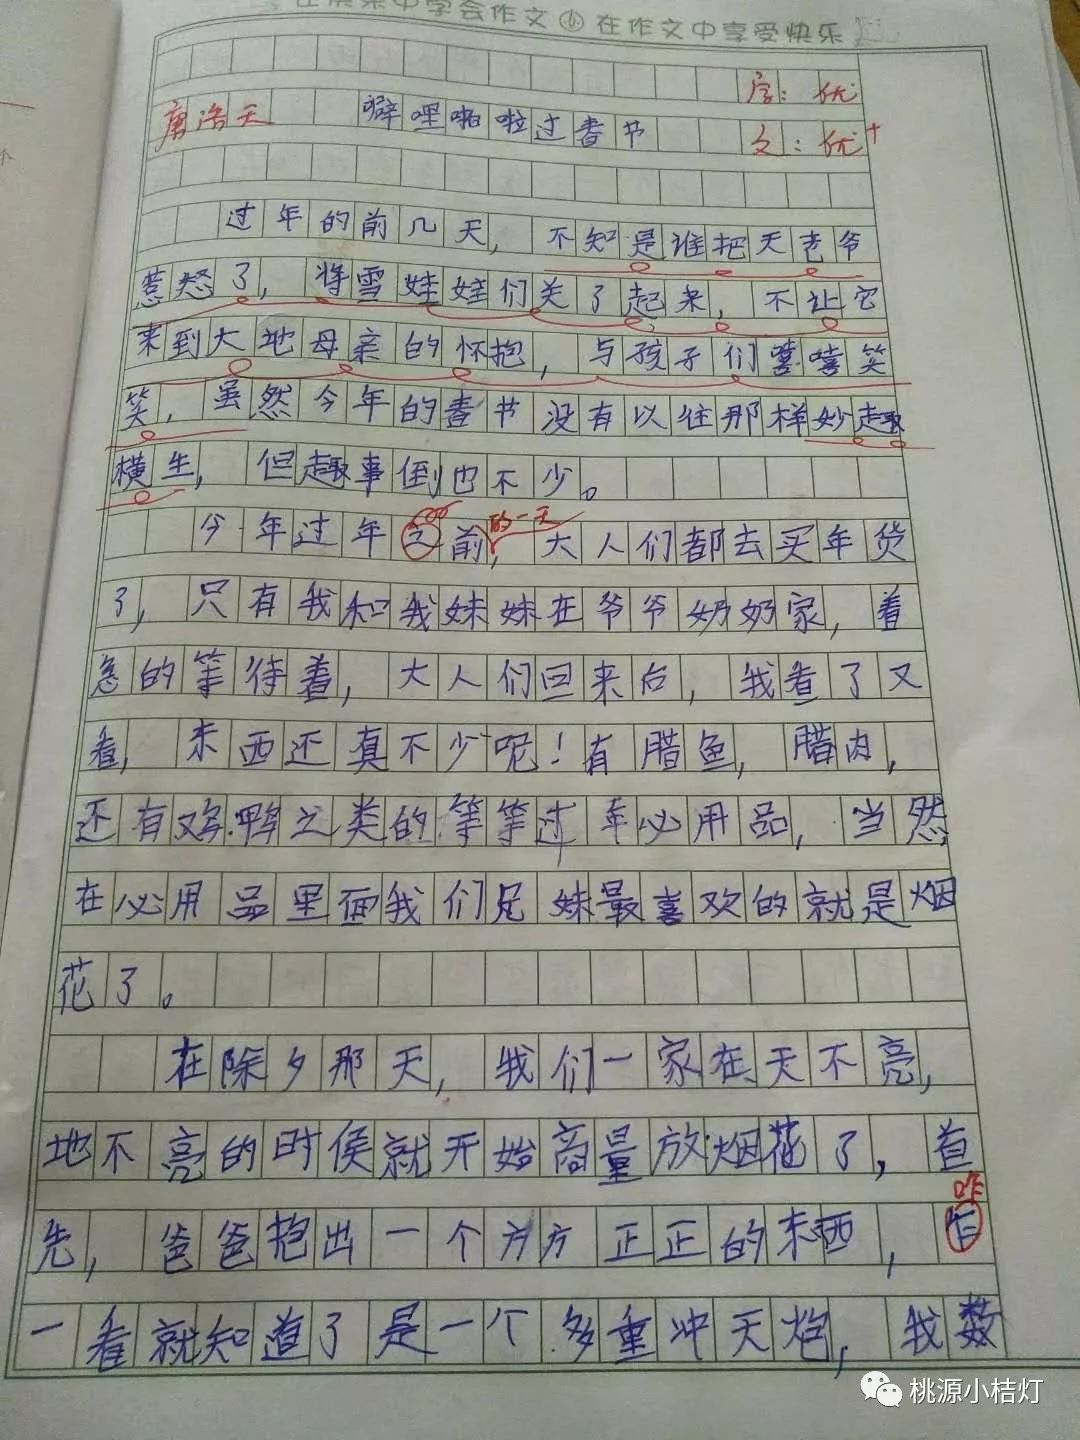 在快乐中学会作文 在作文中享受快乐
字：优
唐浩天 噼哩啪啦过春节 文：优+
过年的前几天，不知是谁把天老爷
惹怒了，将雪娃娃们关了起来，不让它
来到大地母亲的怀抱，与孩子们嘻嘻笑
笑，虽然今年的春节没有以往那样妙趣
横生，但趣事倒也不少。
的一天
今年过年之前，大人们都去买年货
了，只有我和我妹妹在爷爷奶奶家，着
急的等待着，大人们回来后，我看了又
看，东西还真不少呢！有腊鱼，腊肉，
还有鸡.鸭之类的等等过年必用品，当然，
在必用品里面我们兄妹最喜欢的就是烟
花了。
在除夕那天，我们一家在天不亮，
地不亮的时侯就开始商量放烟花了，首
咋
先，爸爸抱出一个方方正正的东西，乍
一看就知道了是一个多重冲天炮，我数
桃源小桔灯